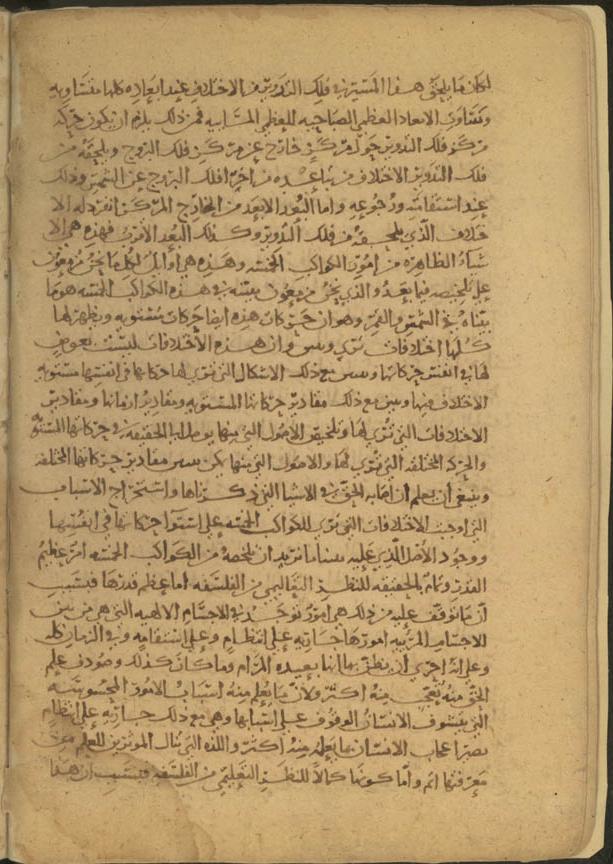 لكان ما يلحق هذا المسير في فلك التدوير من الاختلاف عند ابعاده كلها متساويه
وتفاوت الابعاد العظمى الصاحبه للعظمى المسابيه فمن ذلك يلزم ان يكون حركة
مركز فلك التدوير حول مركز خارج عن مركز فلك البروج ويلحقه من
فلك التدوير الاختلاف من تباعده من اجزا فلك البروج عن الشمس وذلك
عند استقامته ورجوعه واما البعد الابعد من الخارج المركز انفرد له الا
ختلاف الذي يلحقه من فلك التدوير وكذلك البعد الاقرب فهذه هي الا
شياء الظاهره من امور الكواكب الخمسه وهذه هي اوايل لكل ما نحن مزمعون
على تلخيصه فيما بعد والذي نحن مزمعون بيته في هذه الكواكب الخمسه هو ما
بيناه في الشمس والقمر وهو ان حركات هذه ايضا حركات مستويه ويظهر لها
كلها اختلافات ترى ونبين ان هذه الاختلافات ليست تعرض
لها في انفس حركاتها ونبين مع ذلك الاشكال التي ترى لها حركاتها في انفسها مستويه
الاختلاف فيها ونبين مع ذلك مقادير حركاتها المستويه ومقادير ازمانها ومقادير
الاختلافات التي ترى لها وتلخيص الاصول التي منها يوصل الى الحقيقه في حركاتها المستويه
والحركه المختلفه التي ترى لها والاصول التي منها يمكن تبين مقادير حركاتها المختلفه
وينبغي ان يعلم ان اصابه الحق في الاشيا التي ذكرناها واستخراج الاسباب
التي اوجبت الاختلافات التي ترى للكواكب الخمسه على استوا حركاتها في انفسها
ووجود الاصل الذي عليه بيننا ما نريد ان نلخصه من الكواكب الخمسه امر عظيم
القدر وتمام بالحقيقه للنظر التعاليمي من الفلسفه اما عظم قدرها فبسبب
ان ما نوقف عليه من ذلك هي امور توجد في الاجسام الالهيه التي هي من بين
الاجسام المرييه امورها جاريه على انتظام وعلى استقامه وفي الزمان كله
وعلى انه احرى ان يظن بها انها بعيده المرام وما كان كذلك وصودف علم
الحق منه تعجب منه اكثر ولان ما يعلم منه اسباب الامور المحسوسه
التي يتشوف الانسان الوقوف على اسبابها وهي مع ذلك جاريه على انتظام
تصير اعجاب الانسان بما يعلم منه اكثر واللذه التي تنال الموثرين للعلم من
معرفتها اتم واما كونها كمالا للنظر التعليمي من الفلسفه فبسبب ان هذا